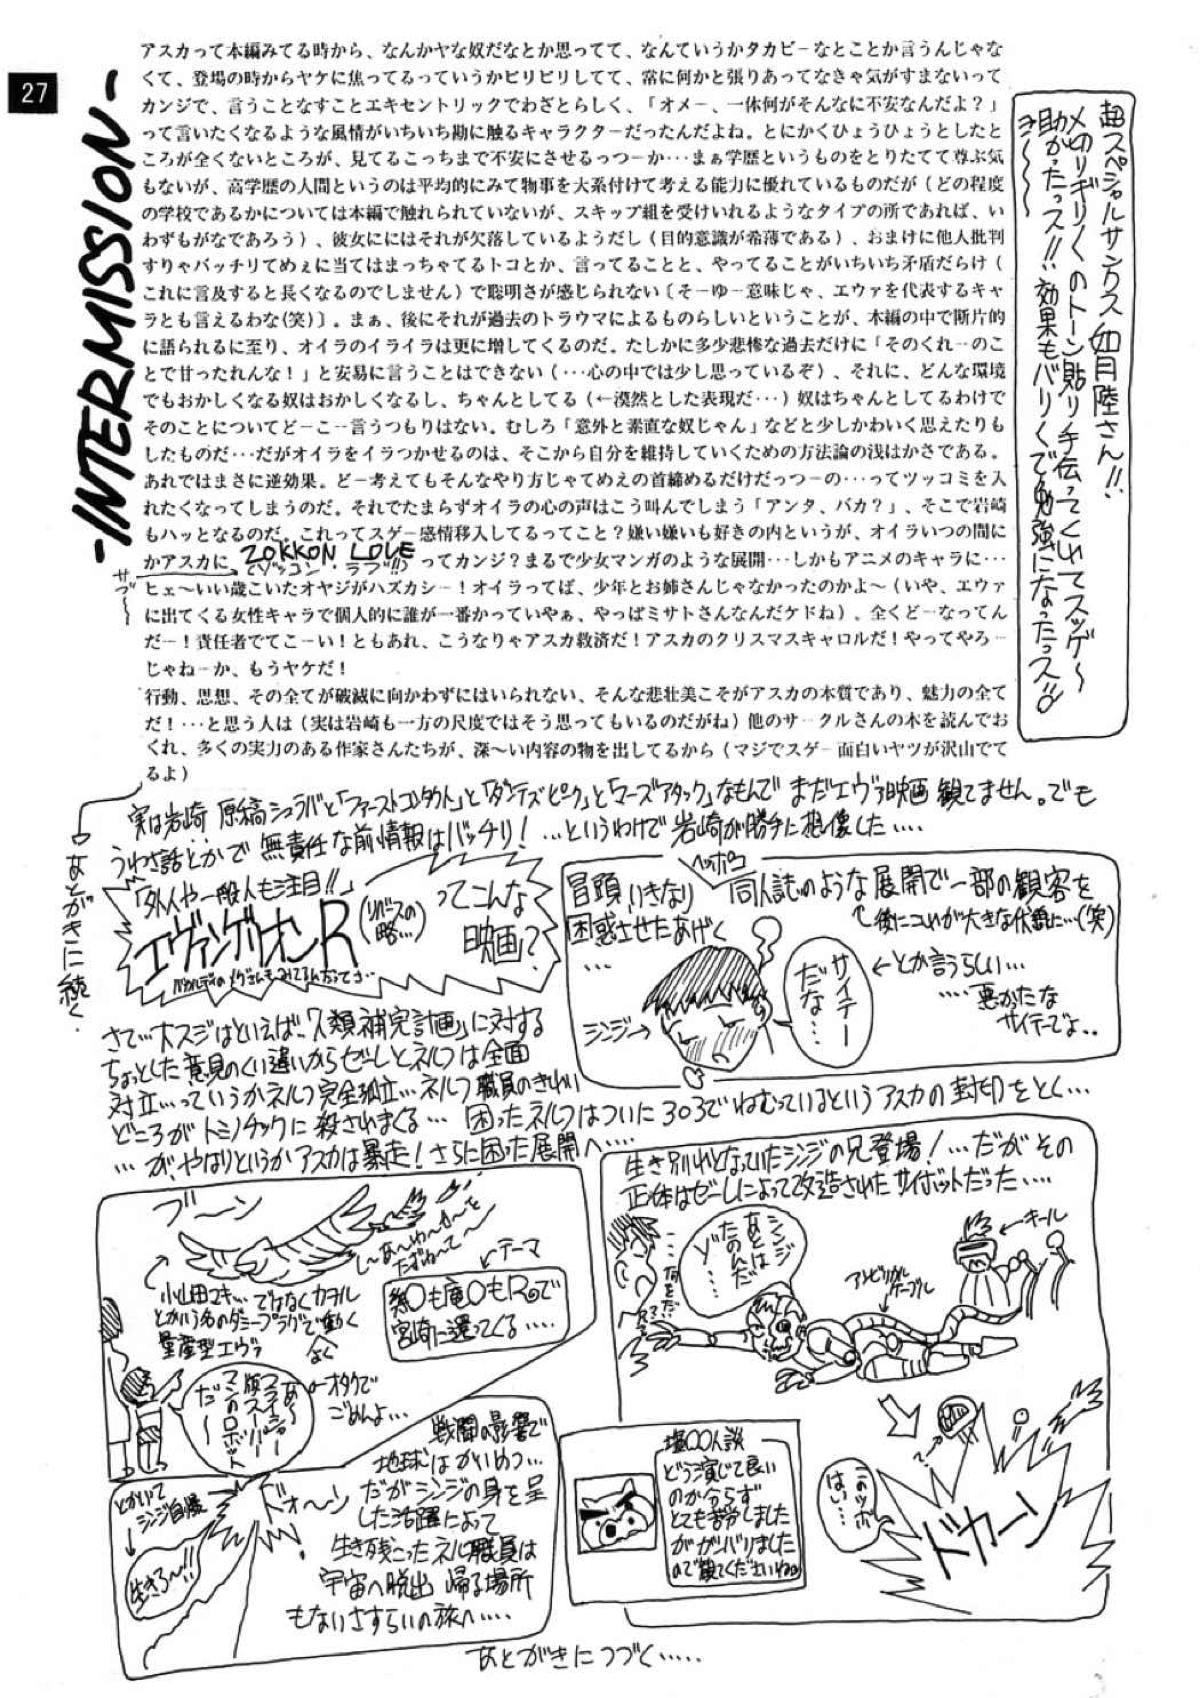 27
-INTERMISSION-
アスカって本編みてる時から、なんかヤな奴だなとか思ってて、なんていうかタカビーなとことか言うんじゃな
くて、登場の時からヤケに焦ってるっていうかピリピリしてて、常に何かと張りあってなきゃ気がすまないって
カンジで、言うことなすことエキセントリックでわざとらしく、「オメー、一体何がそんなに不安なんだよ？」
って言いたくなるような風情がいちいち勘に触るキャラクターだったんだよね。とにかくひょうひょうとしたと
ころが全くないところが、見てるこっちまで不安にさせるっつーか…まぁ学歴というものをとりたてて尊ぶ気
もないが、高学歴の人間というのは平均的にみて物事を大系付けて考える能力に優れているものだが（どの程度
の学校であるかについては本編で触れられていないが、スキップ組を受けいれるようなタイプの所であれば、い
わずもがなであろう）、彼女ににはそれが欠落しているようだし（目的意識が希薄である）、おまけに他人批判
すりゃバッチリてめぇに当てはまっちゃてるトコとか、言ってることと、やってることがいちいち矛盾だらけ（
これに言及すると長くなるのでしません）で聡明さが感じられない〔そーゆー意味じゃ、エヴァを代表するキャ
ラとも言えるわな(笑)〕。まぁ、後にそれが過去のトラウマによるものらしいということが、本編の中で断片的
に語られるに至り、オイラのイライラは更に増してくるのだ。たしかに多少悲惨な過去だけに「そのくれーのこ
とで甘ったれんな！」と安易に言うことはできない（…心の中では少し思っているぞ）、それに、どんな環境
でもおかしくなる奴はおかしくなるし、ちゃんとしてる（←漠然とした表現だ…）奴はちゃんとしてるわけで
そのことについてどーこー言うつもりはない。むしろ「意外と素直な奴じゃん」などと少しかわいく思えたりも
したものだ…だがオイラをイラつかせるのは、そこから自分を維持していくための方法論の浅はかさである。
あれではまさに逆効果。どー考えてもそんなやり方じゃてめえの首締めるだけだっつーの…ってツッコミを入
れたくなってしまうのだ。それでたまらずオイラの心の声はこう叫んでしまう「アンタ、バカ？」、そこで岩崎
もハッとなるのだ。これってスゲー感情移入してるってこと？嫌い嫌いも好きの内というが、オイラいつの間に
かアスカに ZOKKON LOVE ってカンジ？まるで少女マンガのような展開…しかもアニメのキャラに…
ゾッコン・ラブ!!
ヒェ～いい歳こいたオヤジがハズカシー！オイラってば、少年とお姉さんじゃなかったのかよ～（いや、エヴァ
に出てくる女性キャラで個人的に誰が一番かっていやぁ、やっぱミサトさんなんだケドね）。全くどーなってん
だー！責任者でてこーい！ともあれ、こうなりゃアスカ救済だ！アスカのクリスマスキャロルだ！やってやろー
じゃねーか、もうヤケだ！
行動、思想、その全てが破滅に向かわずにはいられない、そんな悲壮美こそがアスカの本質であり、魅力の全て
だ！…と思う人は（実は岩崎も一方の尺度ではそう思ってもいるのだがね）他のサークルさんの本を読んでお
くれ、多くの実力のある作家さんたちが、深～い内容の物を出してるから（マジでスゲー面白いヤツが沢山でて
るよ）
超スペシャルサンクス如月陸さん!!
〆切りギリギリのトーン貼り手伝ってくれてスッゲ～
助かったっス!!効果もバリバリで勉強になったっス
あとがきに続く
実は岩崎 原稿シュラバと「ファーストコンタクト」と「ダンテズピーク」と「マーズアタック」なもんで まだエヴァ映画 観てません。でも
うわさ話とかで 無責任な前情報はバッチリ！…というわけで 岩崎が勝手に想像した…
「外人や一般人も注目!!」
エヴァンゲリオンR
(リバースの略…)
ってこんな
映画？
ヘッポコ
冒頭いきなり 同人誌のような展開で一部の観客を
困惑させたあげく
後にコレが大きな伏線に…(笑)
…
シンジ→
サイテー
だな…
←とか言うらしい…
…悪かたな
サイテーでよ..
さて…大スジはといえば..「人類補完計画」に対する
ちょっとした意見のくい違いからゼーレとネルフは全面
対立…っていうかネルフ完全孤立…ネルフ職員のきれい
どころがトミノチックに殺されまくる… 困ったネルフはついに303でねむっているというアスカの封印をとく…
…が、やはりというかアスカは暴走！さらに困った展開へ…
ブーン
小山田マキ…ではなくカヲル
とかいう名のダミープラグで動く
量産型エヴァ
←テーマ
も庵○もRで
宮崎に還ってくる…
あ～
フライシャー
版スーパー
マンのロボット
だ～
←オタクで
ごめんよ…
とかいて
シンジ自爆
生きろ～!!
ドォーン
戦闘の影響で
地球はかいめつ…
だがシンジの身を呈
した活躍によって
生き残こったネルフ職員は
宇宙へ脱出 帰る場所
もないさすらいの旅へ…
生き別れとなっていたシンジの兄登場！…だがその
正体はゼーレによって改造されたサイボットだった…
シンジ
あとは
たのんだ
ゾ…
←キール
アンビリカル
ケーブル
このツボ
はい…
ドカーン
塩○○人談
どう演じて良い
のか分らず
とても苦労しました
がガンバりました
ので観てくださいね
あとがきにつづく…